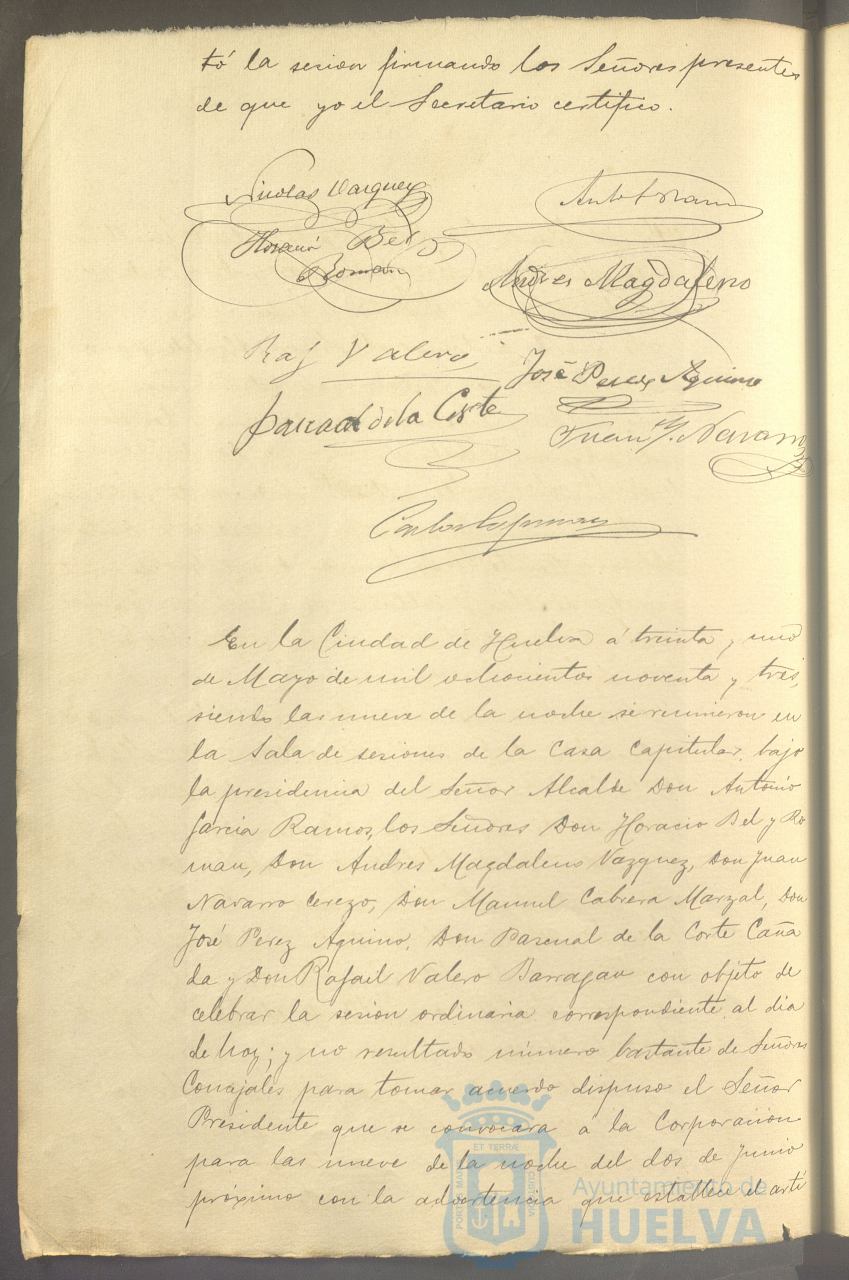 tó la sesion firmando los Señores presentes
de que yo el Secretario certifico.
Nicolas Vazquez
Horacio Bel
Roman
Andres Magdaleno
Raf Valero
José Perez Aquino
Pascual de la Corte
Juan Navarro
En la Ciudad de Huelva á treinta y uno
de Mayo de mil ochocientos noventa y tres,
siendo las nueve de la noche se reunieron en
la Sala de sesiones de la Casa Capitular, bajo
la presidencia del Señor Alcalde Don Antonio
Garcia Ramos, los Señores Don Horacio Bel y Ro
man, Don Andres Magdaleno Vazquez, Don Juan
Navarro Cerezo, Don Manuel Cabrera Marzal, Don
José Perez Aquino, Don Pascual de la Corte Caña
da y Don Rafael Valero Barragan con objeto de
celebrar la sesion ordinaria correspondiente al dia
de hoy; y no resultado número bastante de Señores
Concejales para tomar acuerdo dispuso el Señor
Presidente que se convocara a la Corporacion
para las nueve de la noche del dos de Junio
próximo con la advertencia que establece el artí
ET TERRÆ
Ayuntamiento de
HUELVA